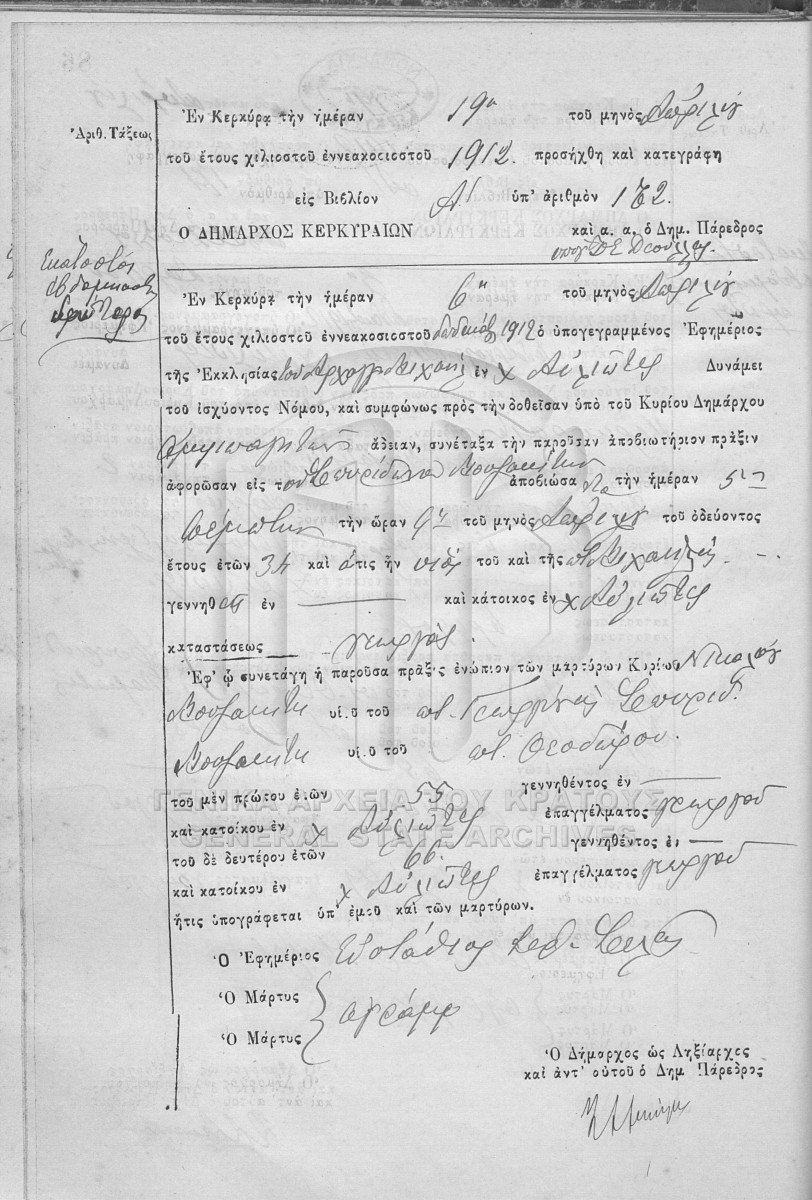 Ἀριθ. Τάξεως
Ἐν Κερκύρᾳ τὴν ἡμέραν 19η τοῦ μηνὸς Ἀπριλίου
τοῦ ἔτους χιλιοστοῦ ἐννεακοσιοστοῦ 1912. προσήχθη καὶ κατεγράφη
εἰς Βιβλίον Α! ὑπ' ἀριθμὸν 172.
Ο ΔΗΜΑΡΧΟΣ ΚΕΡΚΥΡΑΙΩΝ καὶ α. α. ὁ Δημ. Πάρεδρος
Ἑκατοστὸς
Ἐν Κερκύρᾳ τὴν ἡμέραν 6η τοῦ μηνὸς Ἀπριλίου
τοῦ ἔτους χιλιοστοῦ ἐννεακοσιοστοῦ δωδεκάτου 1912 ὁ ὑπογεγραμμένος Ἐφημέριος
τῆς Ἐκκλησίας τοῦ Ἀρχαγγ Μιχαὴλ ἐν χ Αὐλιῶτες Δυνάμει
τοῦ ἰσχύοντος Νόμου, καὶ συμφώνως πρὸς τὴν δοθεῖσαν ὑπὸ τοῦ Κυρίου Δημάρχου
ἄδειαν, συνέταξα τὴν παροῦσαν ἀποβιωτήριον πρᾶξιν
ἀφορῶσαν εἰς τὸν Σπυρίδωνα Βουζακίτην ἀποβιώσαντα τὴν ἡμέραν 5ην
πέμπτην τὴν ὥραν 9ην τοῦ μηνὸς Ἀπριλίου τοῦ ὁδεύοντος
ἔτους ἐτῶν 34 καὶ ὅτις ἦν υἱὸς τοῦ καὶ τῆς π. Μιχαὴλ
γεννηθεὶς ἐν καὶ κάτοικος ἐν χ Αὐλιῶτες
καταστάσεως γεωργὸς.
Ἐφ' ᾧ συνετάγη ἡ παροῦσα πρᾶξις ἐνώπιον τῶν μαρτύρων Κυρίων Νικολάου
Βουζακίτη υἱοῦ τοῦ ποτ. Γεωργίου καὶ Σπυρίδ.
Βουζακίτη υἱοῦ τοῦ ποτ. Θεοδώρου.
τοῦ μὲν πρώτου ἐτῶν 55 γεννηθέντος ἐν
καὶ κατοίκου ἐν χ Αὐλιῶτες ἐπαγγέλματος γεωργοῦ
τοῦ δὲ δευτέρου ἐτῶν 66. γεννηθέντος ἐν
καὶ κατοίκου ἐν χ Αὐλιῶτες ἐπαγγέλματος γεωργοῦ
ἥτις ὑπογράφεται ὑπ' ἐμοῦ καὶ τῶν μαρτύρων.
Ὁ Ἐφημέριος Εὐστάθιος
Ὁ Μάρτυς
ἀγράμμ
Ὁ Μάρτυς
Ὁ Δήμαρχος ὡς Ληξίαρχος
καὶ ἀντ' αὐτοῦ ὁ Δημ. Πάρεδρος
ΓΕΝΙΚΑ ΑΡΧΕΙΑ ΤΟΥ ΚΡΑΤΟΥΣ
GENERAL STATE ARCHIVES